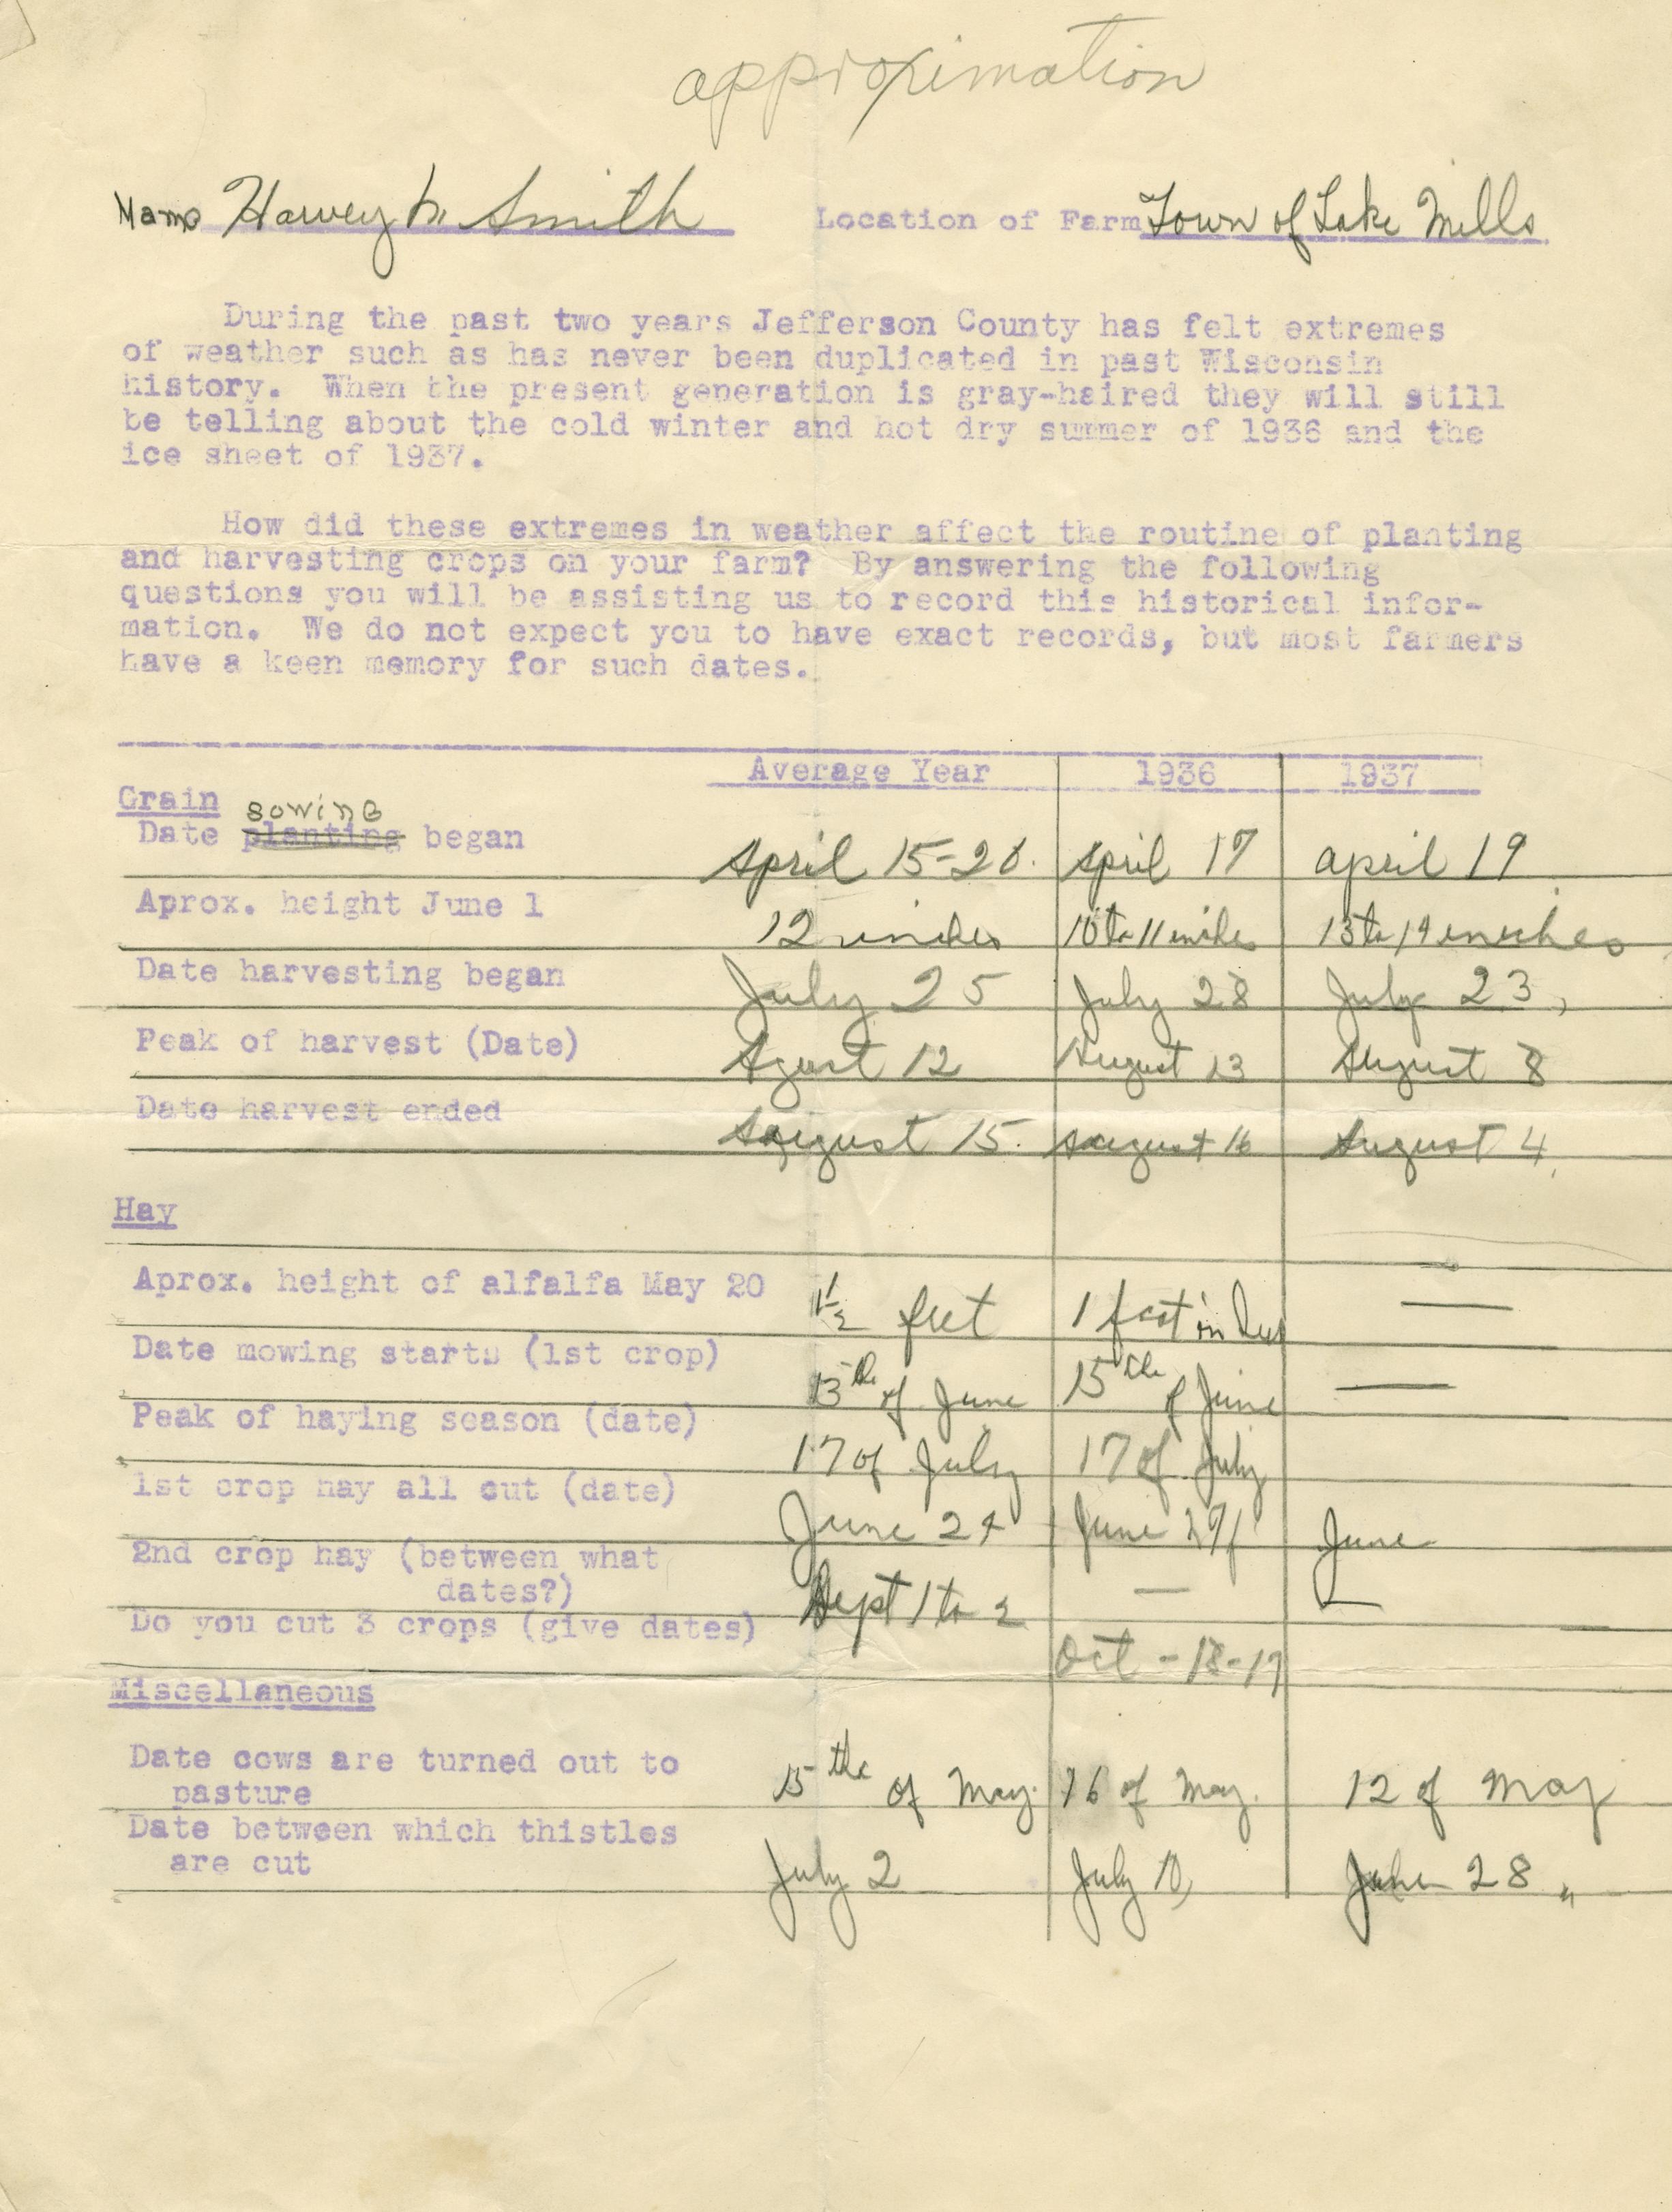 approximation
Name Harvey Smith Location of Farm Town of Lake Mills
During the past two years Jefferson County has felt extremes
of weather such as has never been duplicated in past Wisconsin
history. When the present generation is gray-haired they will still
be telling about the cold winter and hot dry summer of 1936 and the
ice sheet of 1937.
How did these extremes in weather affect the routine of planting
and harvesting crops on your farm? By answering the following
questions you will be assisting us to record this historical infor-
mation. We do not expect you to have exact records, but most farmers
have a keen memory for such dates.
Average Year 1936 1937
Grain
sowing
Date planting began April 15-20. April 17 april 19
Aprox. height June 1 12 inches 10 to 11 inches 13 to 14 inches
Date harvesting began July 25 July 28 July 23,
Peak of harvest (Date) Agust 12 August 13 August 8
Date harvest ended August 15. August 16 August 4
Hay
Aprox. height of alfalfa May 20 1 1/2 feet 1 foot in —
Date mowing starts (1st crop) 13th of June 15th of June —
Peak of haying season (date) 17 of July 17 of July
1st crop hay all cut (date) June 24 June 29 June
2nd crop hay (between what
dates?) Sept 1 to 2 — —
Do you cut 3 crops (give dates) Oct - 18-19
Miscellaneous
Date cows are turned out to
pasture 15th of May. 16 of May. 12 of May
Date between which thistles
are cut July 2 July 10, June 28 "